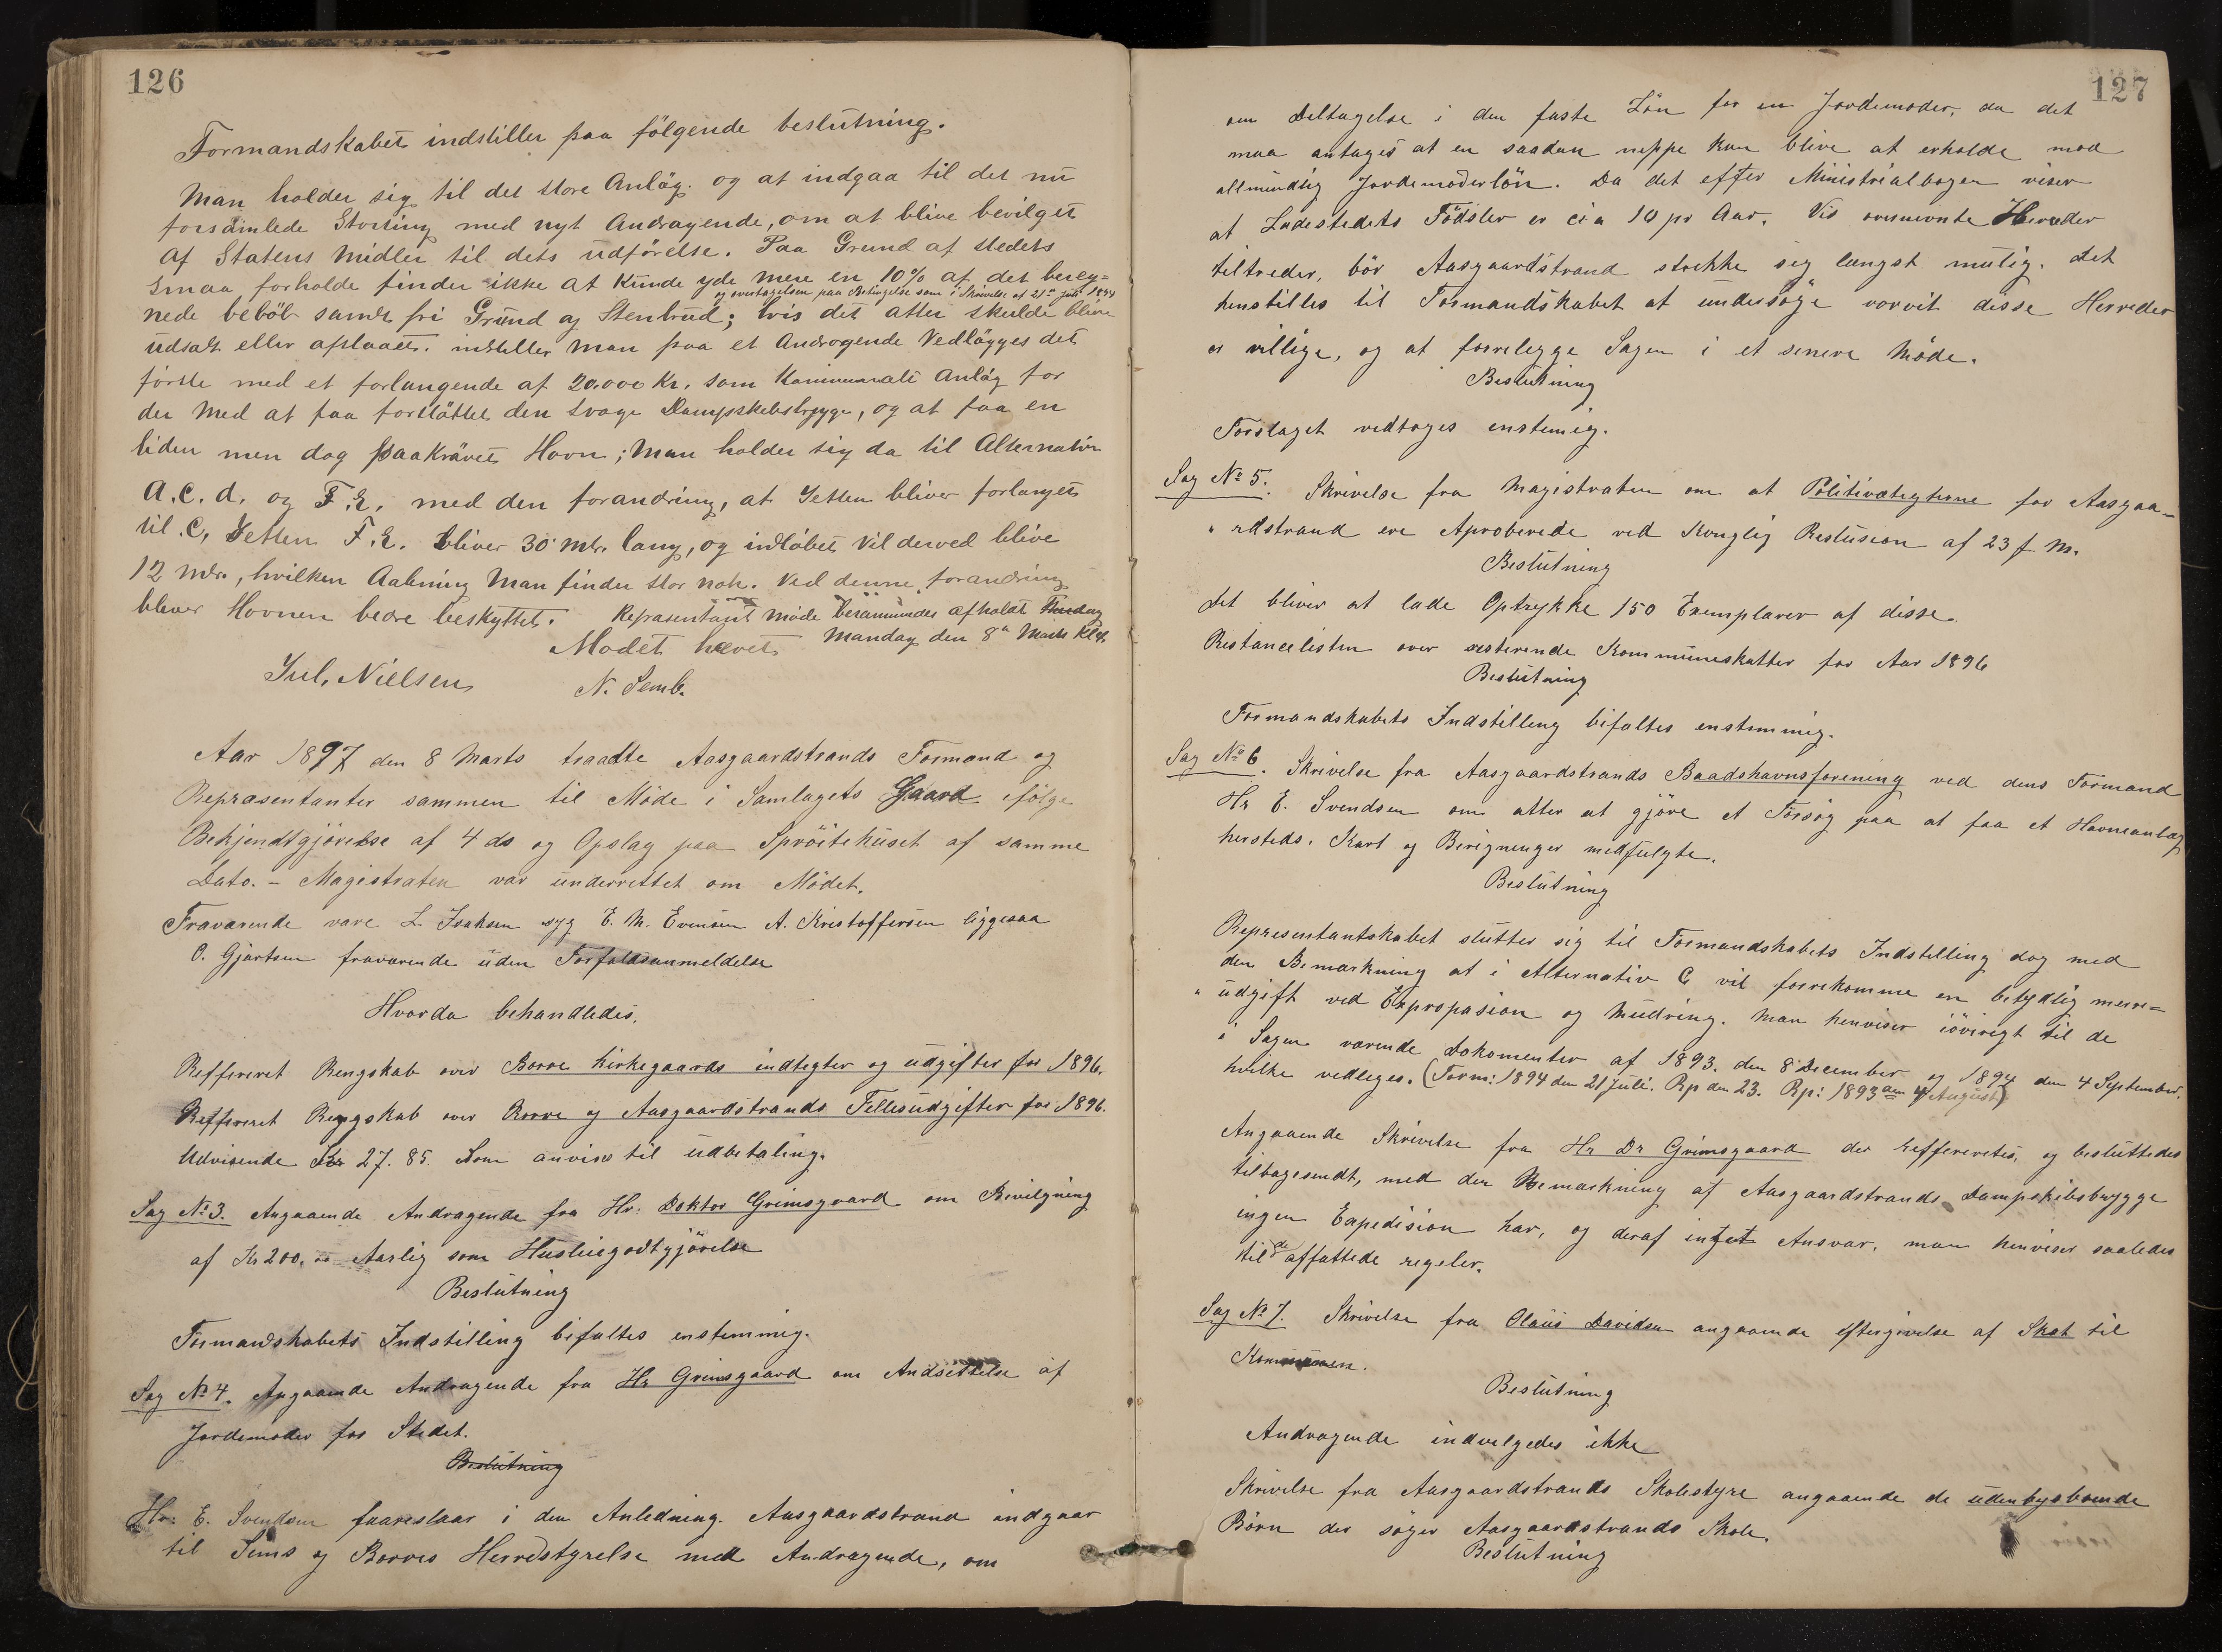 126
Formandskabet indstiller paa fölgende beslutning.
Man holder sig til det store Anläg. og at indgaa til det nu
forsamlede Storting med nyt Andragende, om at blive bevilget
af Statens Midler til dets udförelse. Paa Grund af stedets
smaa forholde finder ikke at Kunde yde mere en 10% af det bereg=
og overtagelsen paa Betingelse som i Skrivelse af 21de Juli 1894
nede belöb samt fri Grund og Stenbrud; hvis det atter skulde blive
udsat eller afslaaet. indstiller Man paa et Andragende Vedlägges det
förste med et forlangende af 20.000 Kr. som Kommunalt Anläg for
der Med at faa forstöttet den svage Dampskibsbrygge, og at faa en
liden men dog paakrävet Havn; Man holder sig da til Alternativ
A.C.d. og F.E. med den forandring, at Jetten bliver forlanget
til C, Jetten F.E. bliver 30 mtr. lang, og indlöbet vil derved blive
12 Mtr., hvilken Aabning Man finder stor nok. Ved denne forandring
bliver Havnen bedre beskyttet. Repræsentant möde berammedes afholdt
Mödet hævet Mandag den 8de Marts Kl 4.
Jul. Nielsen N. Semb.
Aar 1897 den 8 Marts traadte Aasgaardstrands Formand og
Repræsentanter sammen til Möde i Samlagets Gaard ifölge
Bekjendtgjörelse af 4 ds og Opslag paa Spröitehuset af samme
Dato. – Magistraten var underrettet om Mödet.
Fraværende vare L. Isaksen syg E. M. Evensen A. Kristoffersen liggesaa
O. Gjertsen fraværende uden Forfaldsanmeldelse
Hvorda behandledes.
Refferert Rengskab over Borre Kirkegaards indtegter og udgifter for 1896.
Refferert Regnskab over Borre og Aasgaardstrands Fellesudgifter for 1896.
Udvisende Kr 27.85. Som anvises til udbetaling.
Sag No 3. Angaaende Andragende fra Hr: Doktor Grimsgaard om Bevilgning
af Kr 200.00 Aarlig som Husleiegodtgjörelse
Beslutning
Formandskabets Indstilling bifaltes enstemmig.
Sag No 4. Angaaende Andragende fra Hr Grimsgaard om Andsettelse af
Jordemoder for Stedet.
Beslutning
Hr: E. Svendsen faareslaar i den Anledning. Aasgaardstrand indgaar
til Sems og Borres Herredstyrelse med Andragende, om
127
om Deltagelse i den faste Lön for en Jordemoder, da det
maa antages at en saadan neppe kan blive at erholde mod
allmindlig Jordemoderlön. Da det efter Ministrialbogen viser
at Ladestedets Födsler er cia 10 pr Aar. Vis overnevnte Herreder
tiltreder, bör Aasgaardstrand strekke sig langst mulig. Det
henstilles til Formandskabet at undersöge vorvit disse Herreder
er villige, og at forrelegge Sagen i et senere Möde.
Beslutning
Forslaget vedtages enstemig.
Sag No 5. Skrivelse fra Magistraten om at Politivetegterne for Aasgaa–
" rdstrand ere Aproberede ved Konglig Reslusion af 23 f. M.
Beslutning
Det bliver at lade Optrykke 150 Exemplarer af disse.
Restancelisten over resterende Kommuneskatter for Aar 1896
Beslutning
Formandskabets Indstilling bifaltes enstemmig.
Sag No 6. Skrivelse fra Aasgaardstrands Baadshavnsforening ved dens Formand
Hr E. Svendsen om atter at gjöre et Forsög paa at faa et Havneanlæg
hersteds. Kart og Beregninger medfulgte.
Beslutning
Representantskabet slutter sig til Formandskabets Indstilling dog med
den Bemærkning at i Alternativ C vil forrekomme en betydlig merre=
" udgift ved Expropasion og Mudring. Man henviser iövrigt til de
i Sagen værende Dokomenter af 1893. den 8 December og 1894 den 4 September.
hvilke vedleges. (Form: 1894 den 21 Juli. Rp den 23. Rp: 1893 den 4 August)
Angaaende Skrivelse fra Hr Dr Grimsgaard der reffereretes, og besluttedes
tilbagesendt, med den Bemærkning at Aasgaardstrands Dampskibsbrygge
ingen Expedision har, og deraf intet Ansvar. man henviser saaledes
til de affattede regeler.
Sag No 7. Skrivelse fra Olaüs Davidsen angaaende Eftergivelse af Skat til
Kommunen.
Beslutning
Andragende indvilgedes ikke
Skrivelse fra Aasgaardstrands Skolestyre angaaende de udenbysboende
Börn der söger Aasgaardstrands Skole.
Beslutning